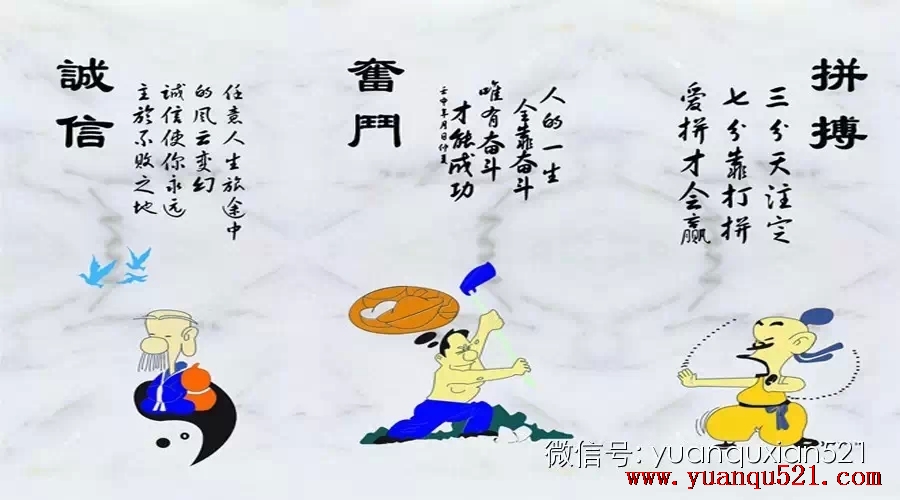 誠信
任意人生旅途中
的风云变幻
诚信使你永远
主於不败之地
奮鬥
人的一生
全靠奋斗
唯有奋斗
才能成功
拼搏
三分天注定
七分靠打拼
爱拼才会赢
微信号: yuanquxian521
www.yuanqu521.com